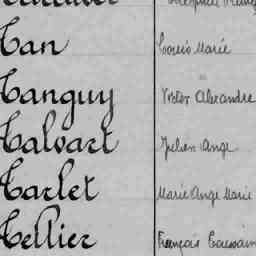 Tan Louis Marie
Tanguy Victor Alexandre
Talvart Julien Ange
Tarlet Marie Ange Marie
Tellier François Toussain